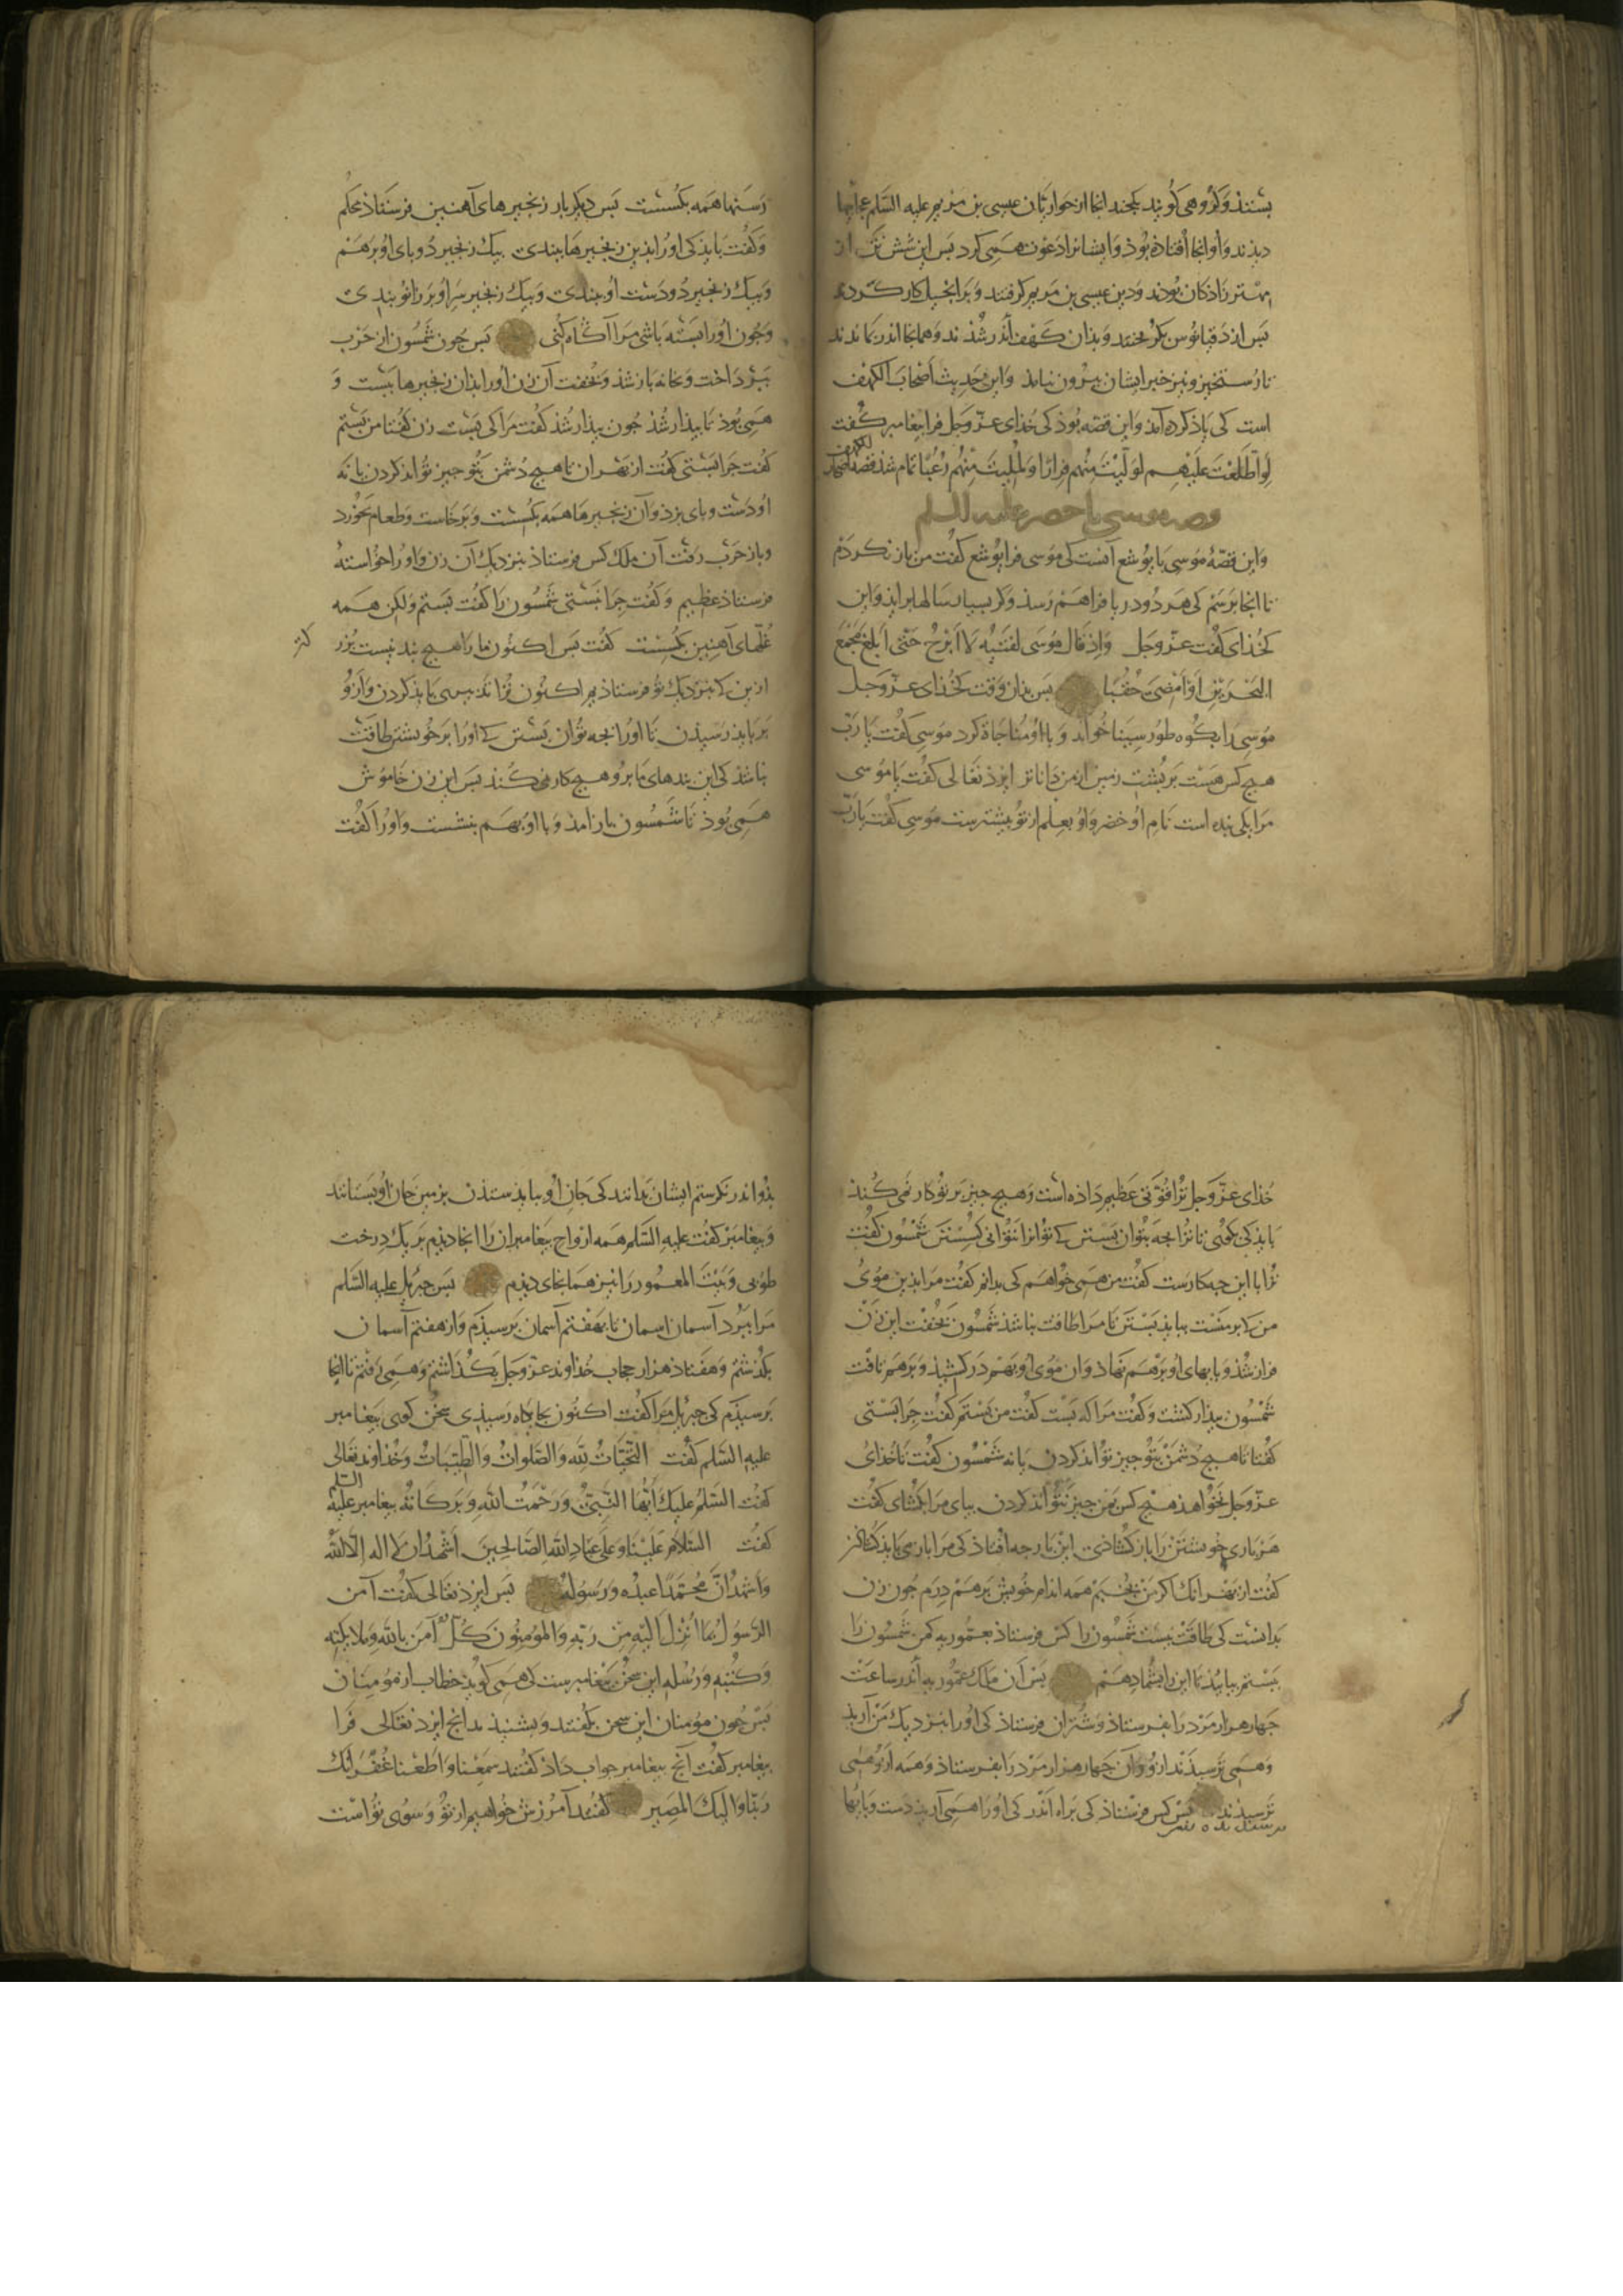 بشنذند و گروهی گویند کجند انجا از حواریان عیسی بن مریم علیه السّلم عجابها
دیذند و او انجا افتاذه بوذ و ایشانرا دعوت همی کرد بس این شش تن از
مهتر زاذکان بوذند و دین عیسی بن مریم کرفتند و بر انجیل کار کردند
بس از دقیانوس بکریختند و بذان کهف اندر شذند و همانجا اندر بماندند
تا رستخیز و نیز خبر ایشان بیرون نیامذ و این حدیث أصحاب الکهف
است کی یاذ کرده آمذ و این قصّه بوذ کی خذای عزّ و جل فرا بیغامبر کفت
لَوِ اطَّلَعْتَ عَلَیْهِم لَوَلَّیْتَ مِنْهُم فِرَارًا وَلَمُلِیْتَ مِنْهُم رُعْبًا تمام شذ قصه اصحاب الکهف
قصه موسی با خضر علیه السلم
و این قصّهٔ موسی با یوشع آنست کی موسی فرا یوشع کفت من باز نکردم
تا انجا برسم کی هر دو دریا فراهم رسذ و کر بسیار سالها براید و این
کخذای کفت عزّ و جل وَاِذ قالَ موسَی لفَتَیٰهُ لا اَبرَحُ حَتّی اَبلغَ مَجْمَعَ
البَحرَیْنِ اَو اَمْضِیَ حُقُبًا بس بذان وقت کخذای عزّ و جل
موسی را بکوه طور سینا خواند و با او مناجاة کرد موسی کفت یا ربّ
هیچ کس هست بر بشت زمین از من داناتر ایزذ تعالی کفت یا موسی
مرا یکی بنده است نام او خضر و او بعلم از تو بیشترست موسی کفت یا ربّ
رسنها همه بکسست بس دیکر بار زنجیرهای آهنین فرستاذ محکم
و کفت بایذ کی او را بذین زنجیرها ببندی بیک زنجیر دو بای او بر هم
و بیک زنجیر دو دست او ببندی و بیک زنجیر سر او بر زانو بندی
و جون او را بسته باشی مرا آکاه کنی بس جون شمسون از حرب
ببرداخت و بخانه باز شذ و بخفت آن زن او را بذان زنجیرها ببست و
همی بوذ تا بیذار شذ جون بیذار شذ کفت مرا کی بست زن کفتا من بستم
کفت جرا بستی کفت از بهر ان تا هیچ دشمن بتو جیز تواند کردن یا نه
او دست و بای بزذ و آن زنجیرها همه بکسست و برخاست و طعام بخورد
و باز حرب رفت آن ملک کس فرستاذ بنزدیک آن زن و او را خواسته
فرستاذ عظیم و کفت جرا نبستی شمسون را کفت ببستم ولکن همه
غلّهای آهنین بکسست کفت بس اکنون ما را هیچ بند نیست بزر
کتر
ازین کی بنزدیک تو فرستاذیم اکنون ترا تدبیری بایذ کردن و ازو
بر بایذ رسیذن تا او را بجه توان بستن کی او را بر خویشتن طاقت
نباشذ کی این بندهای ما برو هیچ کار نمی کند بس این زن خاموش
همی بوذ تا شمسون باز امذ و با او بهم بنشست و او را کفت
خذای عزّ و جل ترا قوّتی عظیم داذه است و هیچ جیز بر تو کار نمی کنذ
بایذ کی بکوی تا ترا بجه بتوان بستن کی تو انرا نتوانی کسستن شمسون کفت
ترا با این جه کارست کفت من همی خواهم کی بدانم کفت مرا بذین موی
من کی بر منست ببایذ بستن تا مرا طاقت نباشذ شمسون بخفت این زن
فراز شذ و بایهای او بر هم نهاذ و ان موی او بهم در کشیذ و بر هم تافت
شمسون بیذار کشت و کفت مرا که بست کفت من بستم کفت جرا بستی
کفتا تا هیچ دشمن بتو جیز تواند کردن یا نه شمسون کفت تا خذای
عزّ و جل نخواهذ هیچ کس بمن جیز نتواند کردن بیای مرا بکشای کفت
هر باری خویشتن را باز کشاذی این بار جه افتاذ کی مرا باز می بایذ کشاذن
کفت از بهر انک اکر من بجنبم همه اندام خویش بر هم درم جون زن
بدانست کی طاقت نیست شمسون را کس فرستاذ بعمّوریه کمن شمسون را
ببستم بیایید تا این را بشما دهم بس آن ملک عمّوریه اندر ساعت
جهار هزار مرد را بفرستاذ و شتران فرستاذ کی او را بنزدیک من آریذ
و همی ترسیذند ازو و آن جهار هزار مرد را بفرستاذ و همه ازو همی
ترسیذند بس کس فرستاذ کی براه اندر کی او را همی آریذ دست و بایها
بذو اندر نکرستم ایشان بدانند کی جان او ببایذ ستذن بزمین جان او بستانند
و بیغامبر کفت علیه السّلم همه ارواح بیغامبران را انجا دیذم بر یک درخت
طوبی و بیت المعمور را نیز همانجای دیذم بس جبریل علیه السّلم
مرا ببرد آسمان اسمان تا بهفتم آسمان برسیذم و از هفتم آسمان
بکذشتم و هفتاذ هزار حجاب خذاوند عزّ و جل بکذاشتم و همی رفتم تا انجا
برسیذم کی جبریل مرا کفت اکنون بجایکاه رسیذی سخن کوی بیغامبر
علیه السّلم کفت التّحیّاتُ للّه والصّلواتُ والطّیّباتُ و خذاوند تعالی
کفت السّلمُ علیک اَیّها النّبیُّ ورَحمَتُ اللّهِ وبَرکاتُهُ بیغامبر علیه السلم
کفت السّلامُ عَلَیْنا وعَلی عِبادِ اللّهِ الصّالحینَ أشهدُ ان لا اله الّا اللّه
وأشهدُ انَّ مُحمّدًا عبدُه ورَسُولُهُ بس ایزذ تعالی کفت آمن
الرّسُولُ بِما اُنزِلَ اِلَیْهِ مِن رَبّهِ والمؤمِنُونَ کُلٌّ آمَنَ باللّهِ وملایکتِه
وکُتُبِه ورُسُلِه این سخن بیغامبرست کی همی کوید خطاب از مؤمنان
بس جون مؤمنان این سخن بکفتند و بشنیذند انج ایزذ تعالی فرا
بیغامبر کفت آنج بیغامبر جواب داذ کفتند سَمِعْنا واَطَعْنا غُفْرانَکَ
رَبّنا والَیکَ المَصِیر کفتند آمرزش خواهیم از تو و سوی تو است